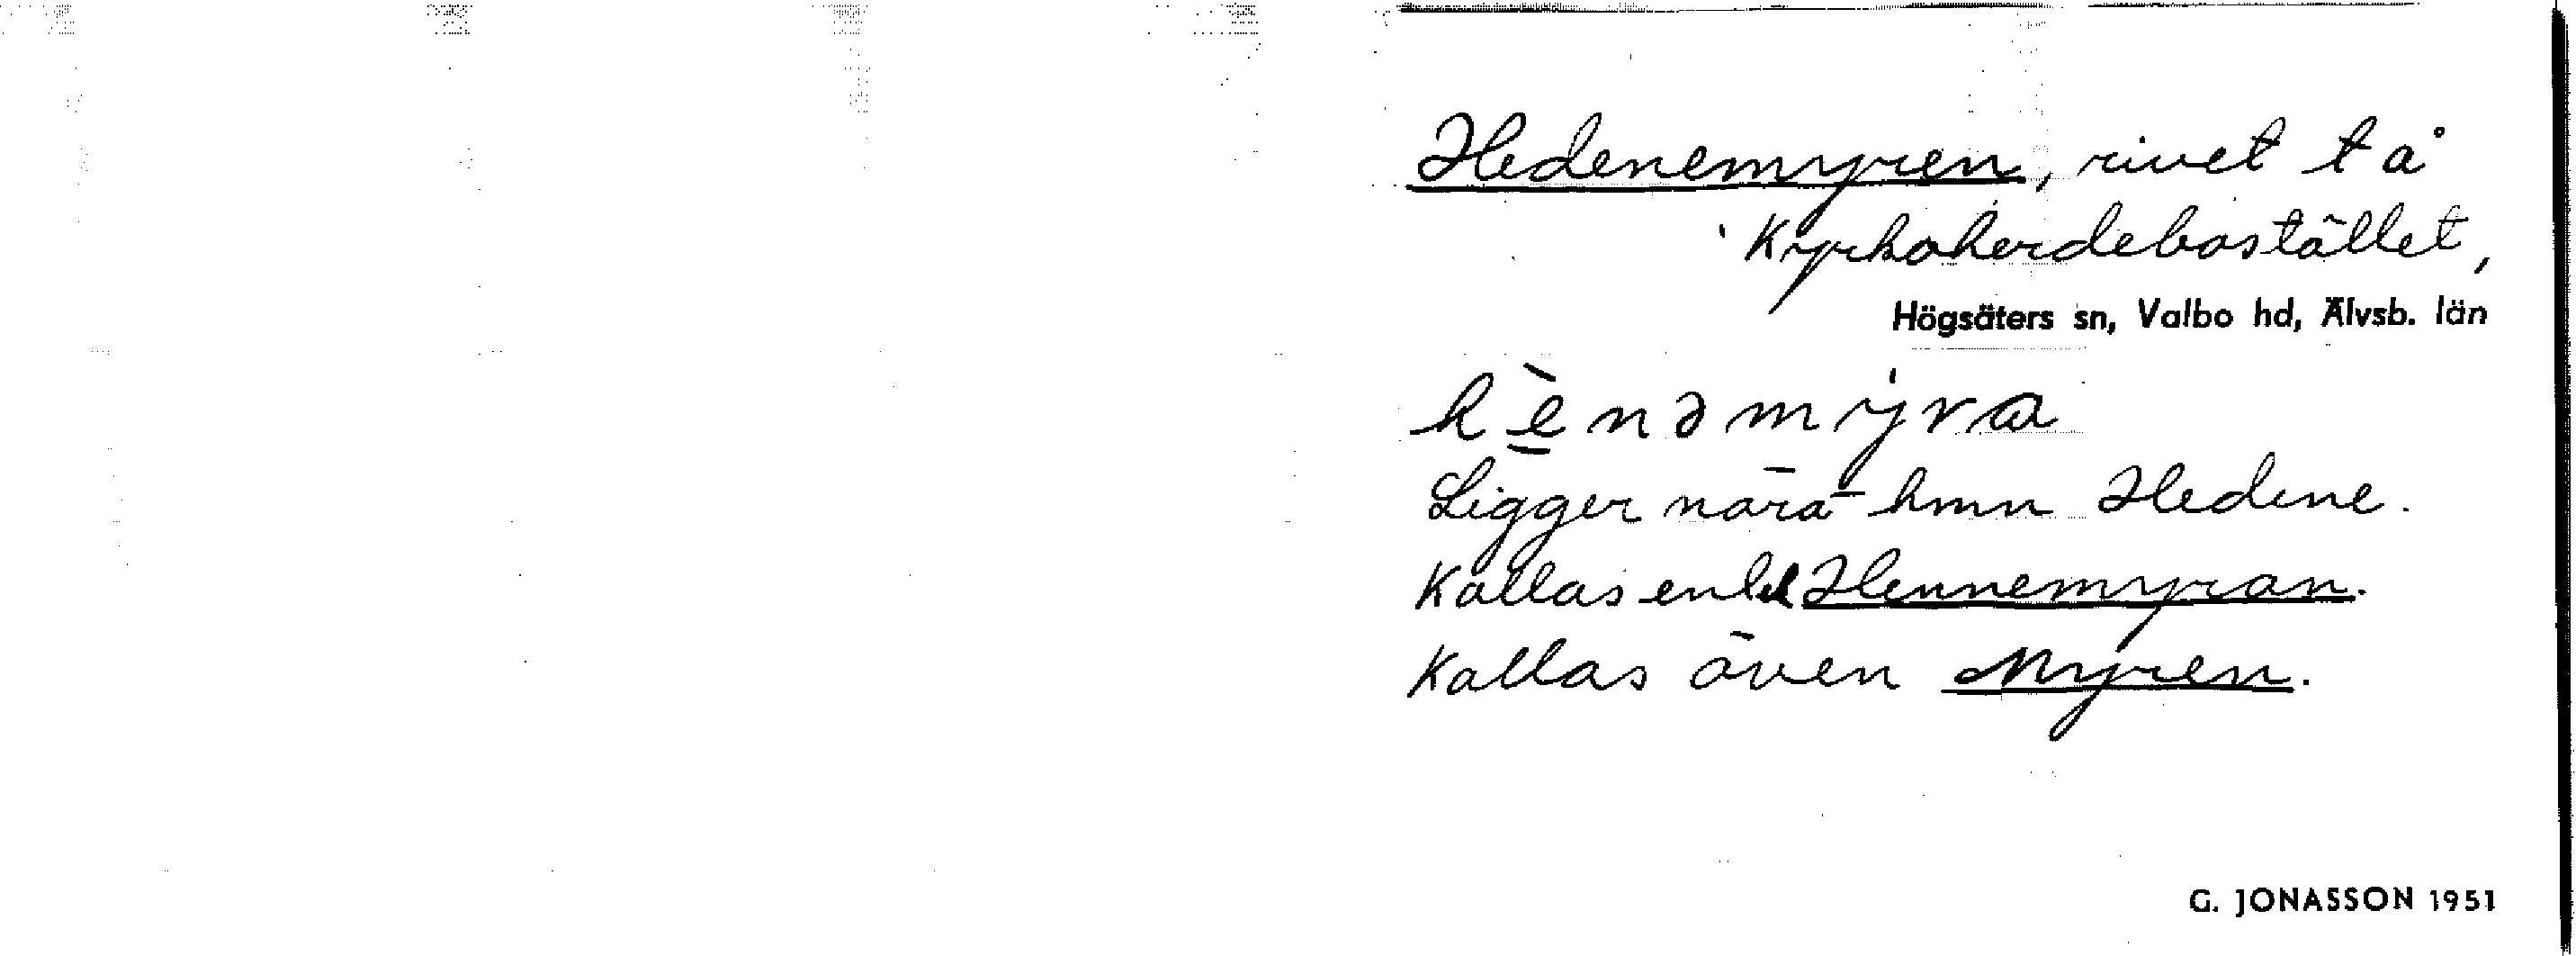 Hedenemyren, rivet tå
Kyrkoherdebostället,
Högsäters sn, Valbo hd, Älvsb. län
hènəmýra
Ligger nära hmn Hedene.
Kallas enkel Hennemyran.
Kallas även Myren.
G. JONASSON 1951